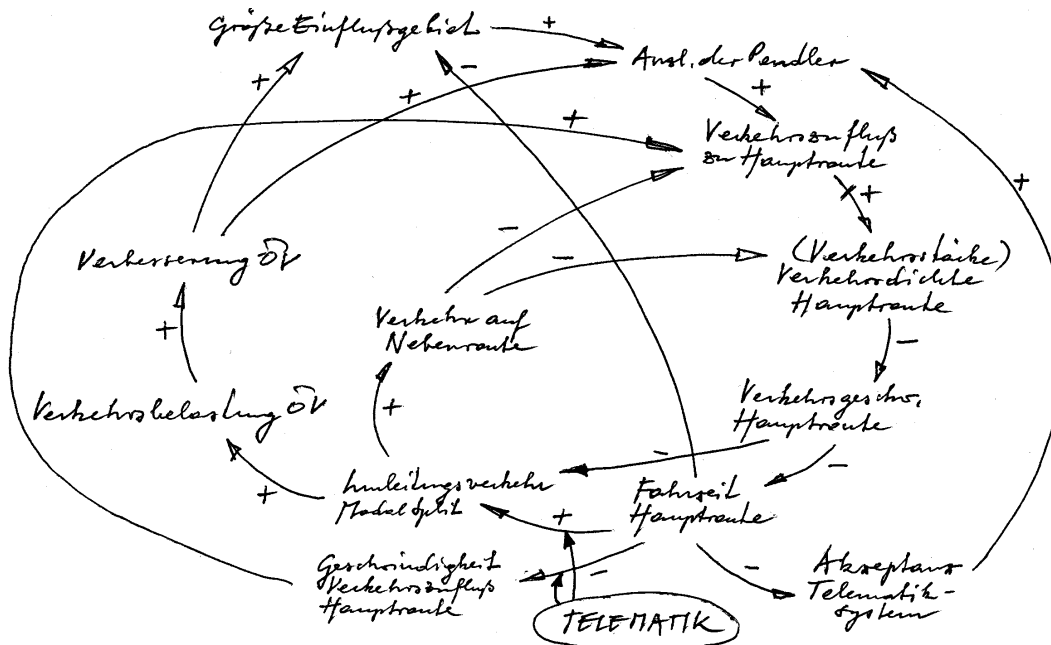 Größe Einflußgebiet
+
+
-
Anzl. der Pendler
+
+
+
Verkehrszufluß
zu Hauptroute
+
+
-
-
Verbesserung ÖV
(Verkehrsstärke)
Verkehrsdichte
Hauptroute
+
Verkehr auf
Nebenroute
-
Verkehrsbelastung ÖV
+
Verkehrsgeschw.
Hauptroute
-
-
+
Umleitungsverkehr
Modal Split
+
Fahrzeit
Hauptroute
Geschwindigkeit
Verkehrszufluß
Hauptroute
-
-
Akzeptanz
Telematik-
system
TELEMATIK